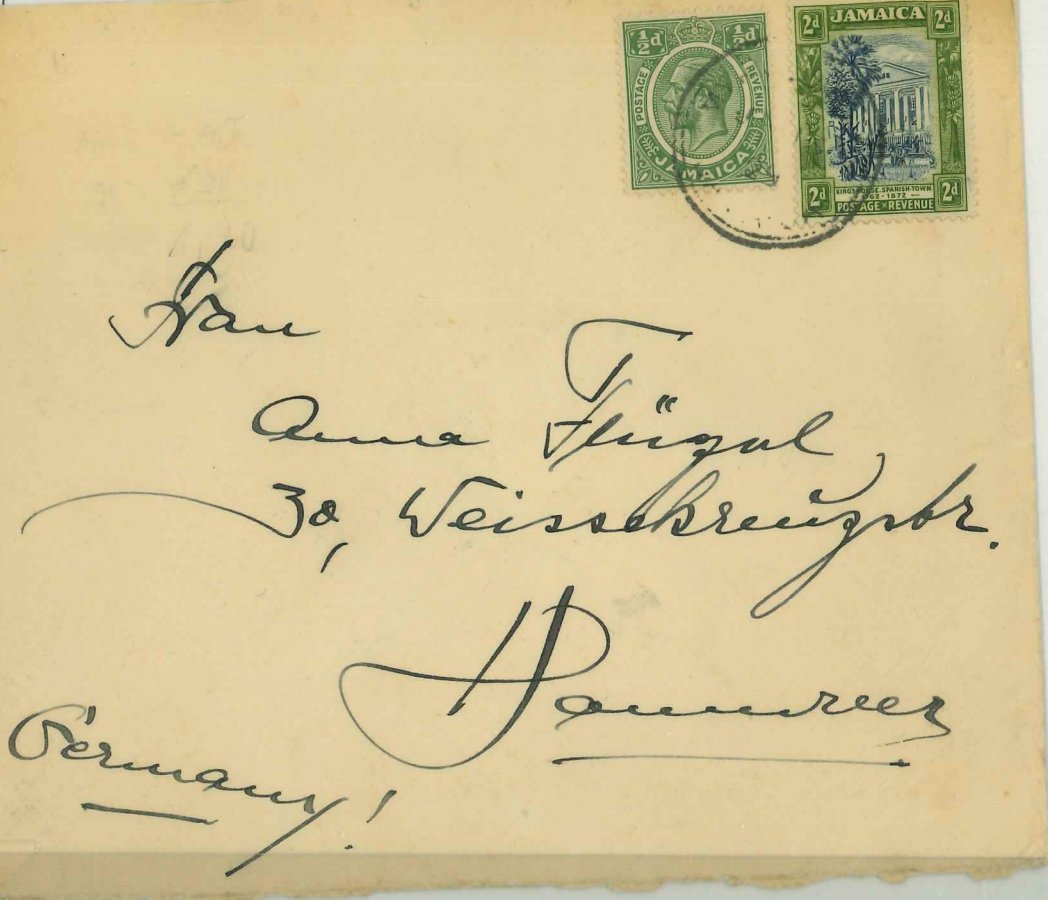 ½d ½d
POSTAGE REVENUE
JAMAICA
2d JAMAICA 2d
KINGS HOUSE, SPANISH-TOWN
1762-1872
2d POSTAGE & REVENUE 2d
Frau
Anna Flügel
30, Weissekreuzstr.
Hannover
Germany!